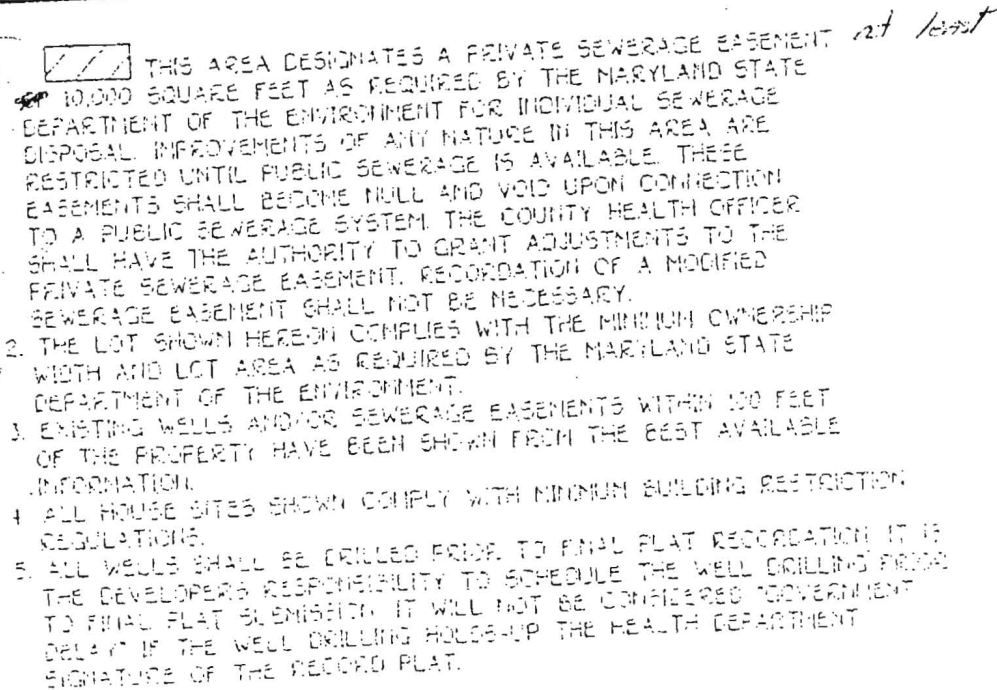 THIS AREA DESIGNATES A PRIVATE SEWERAGE EASEMENT at least
10,000 SQUARE FEET AS REQUIRED BY THE MARYLAND STATE
DEPARTMENT OF THE ENVIRONMENT FOR INDIVIDUAL SEWERAGE
DISPOSAL. IMPROVEMENTS OF ANY NATURE IN THIS AREA ARE
RESTRICTED UNTIL PUBLIC SEWERAGE IS AVAILABLE. THESE
EASEMENTS SHALL BECOME NULL AND VOID UPON CONNECTION
TO A PUBLIC SEWERAGE SYSTEM. THE COUNTY HEALTH OFFICER
SHALL HAVE THE AUTHORITY TO GRANT ADJUSTMENTS TO THE
PRIVATE SEWERAGE EASEMENT. RECORDATION OF A MODIFIED
SEWERAGE EASEMENT SHALL NOT BE NECESSARY.
2. THE LOT SHOWN HEREON COMPLIES WITH THE MINIMUM OWNERSHIP
WIDTH AND LOT AREA AS REQUIRED BY THE MARYLAND STATE
DEPARTMENT OF THE ENVIRONMENT.
3. EXISTING WELLS AND/OR SEWERAGE EASEMENTS WITHIN 100 FEET
OF THE PROPERTY HAVE BEEN SHOWN FROM THE BEST AVAILABLE
INFORMATION.
4 ALL HOUSE SITES SHOWN COMPLY WITH MINIMUM BUILDING RESTRICTION
REGULATIONS.
5. ALL WELLS SHALL BE DRILLED PRIOR TO FINAL PLAT RECORDATION. IT IS
THE DEVELOPERS RESPONSIBILITY TO SCHEDULE THE WELL DRILLING PRIOR
TO FINAL PLAT SUBMISSION. IT WILL NOT BE CONSIDERED "GOVERNMENT
DELAY" IF THE WELL DRILLING HOLDS-UP THE HEALTH DEPARTMENT
SIGNATURE OF THE RECORD PLAT.